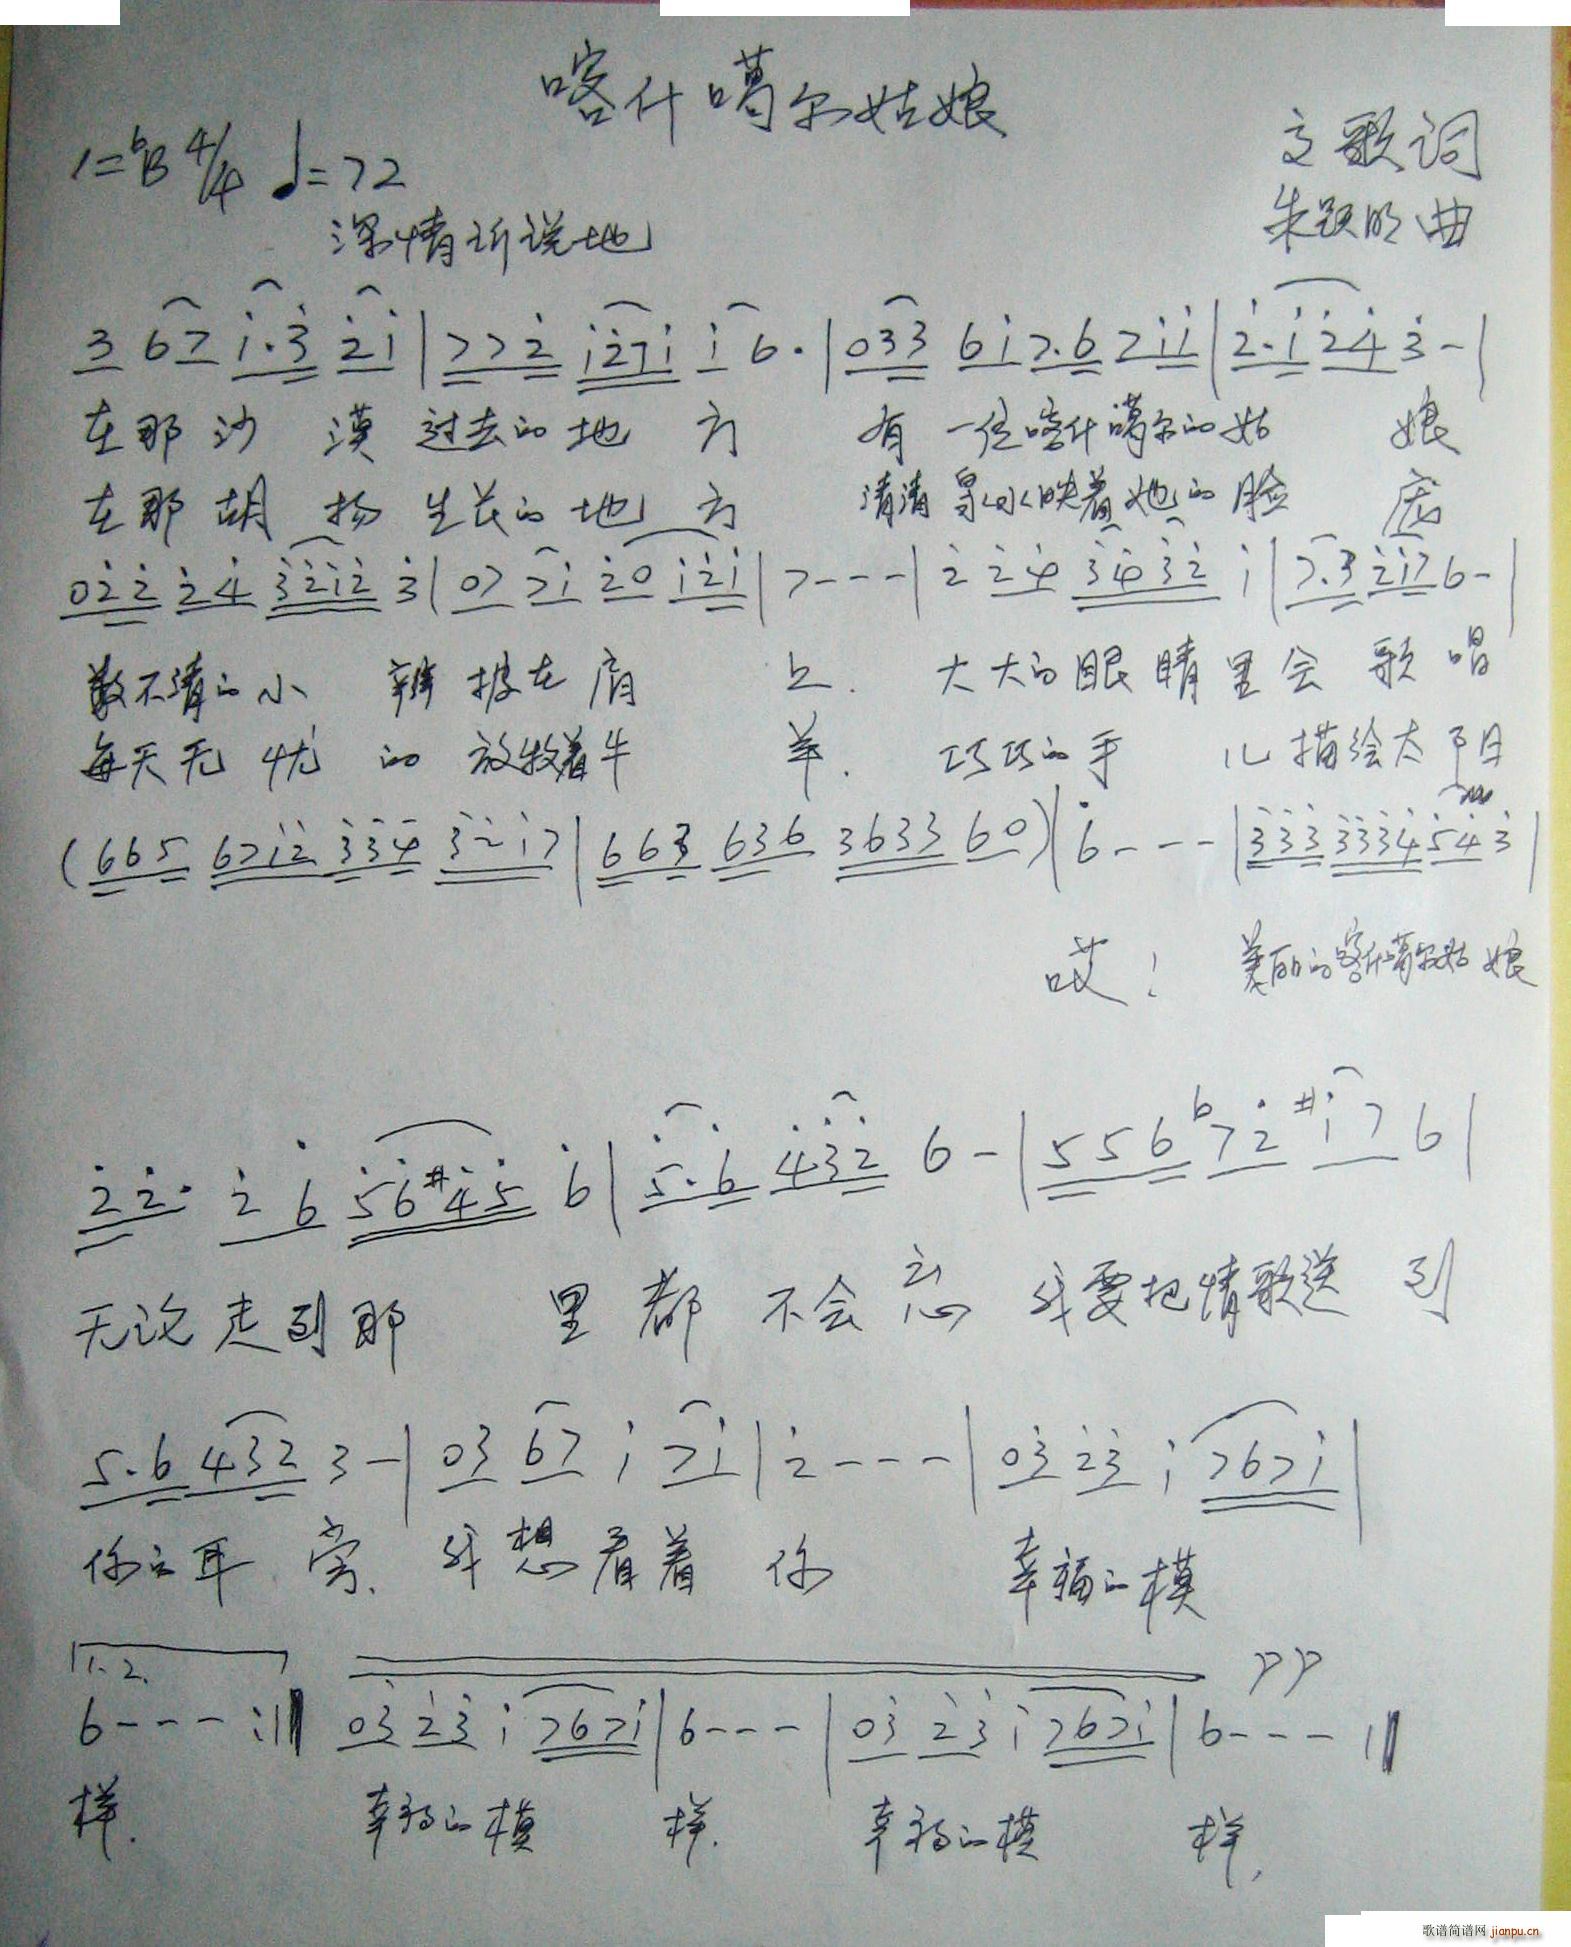 喀什噶尔姑娘
1=♭B 4/4 ♩=72
文歌词
深情诉说地
朱跃明曲
3 67 i·3 2i | 772 i27i i 6· | 033 6i7·6 7ii | 2·i24 3- |
在那沙漠过去的地方 有一位喀什噶尔的姑娘
在那胡杨生长的地方 清清泉水映着她的脸庞
022 24 3212 3 | 07 7i 20 i2i | 7--- | 2 24 3432 i | 7·3 2i7 6- |
数不清的小辫披在肩上. 大大的眼睛里会歌唱
每天无忧的放牧着牛羊. 巧巧的手儿描绘太阳
(665 67i2 334 32i7 | 663 636 3633 60) | 6--- | 333 3334 54 3 |
哎! 美丽的喀什噶尔姑娘
22· 2 6 56#45 6 | 5·6 432 6- | 556 ♭72 #i7 6 |
无论走到那里都不会忘 我要把情歌送到
5·6 432 3- | 03 67 i 7i | 2--- | 03 23 i 767i |
你的耳旁. 我想看着你 幸福的模
1.2.
6--- :|| 03 23 i 767i | 6--- | 03 23 i 767i | 6--- ||
样. 幸福的模样. 幸福的模样.
歌谱简谱网 jianpu.cn